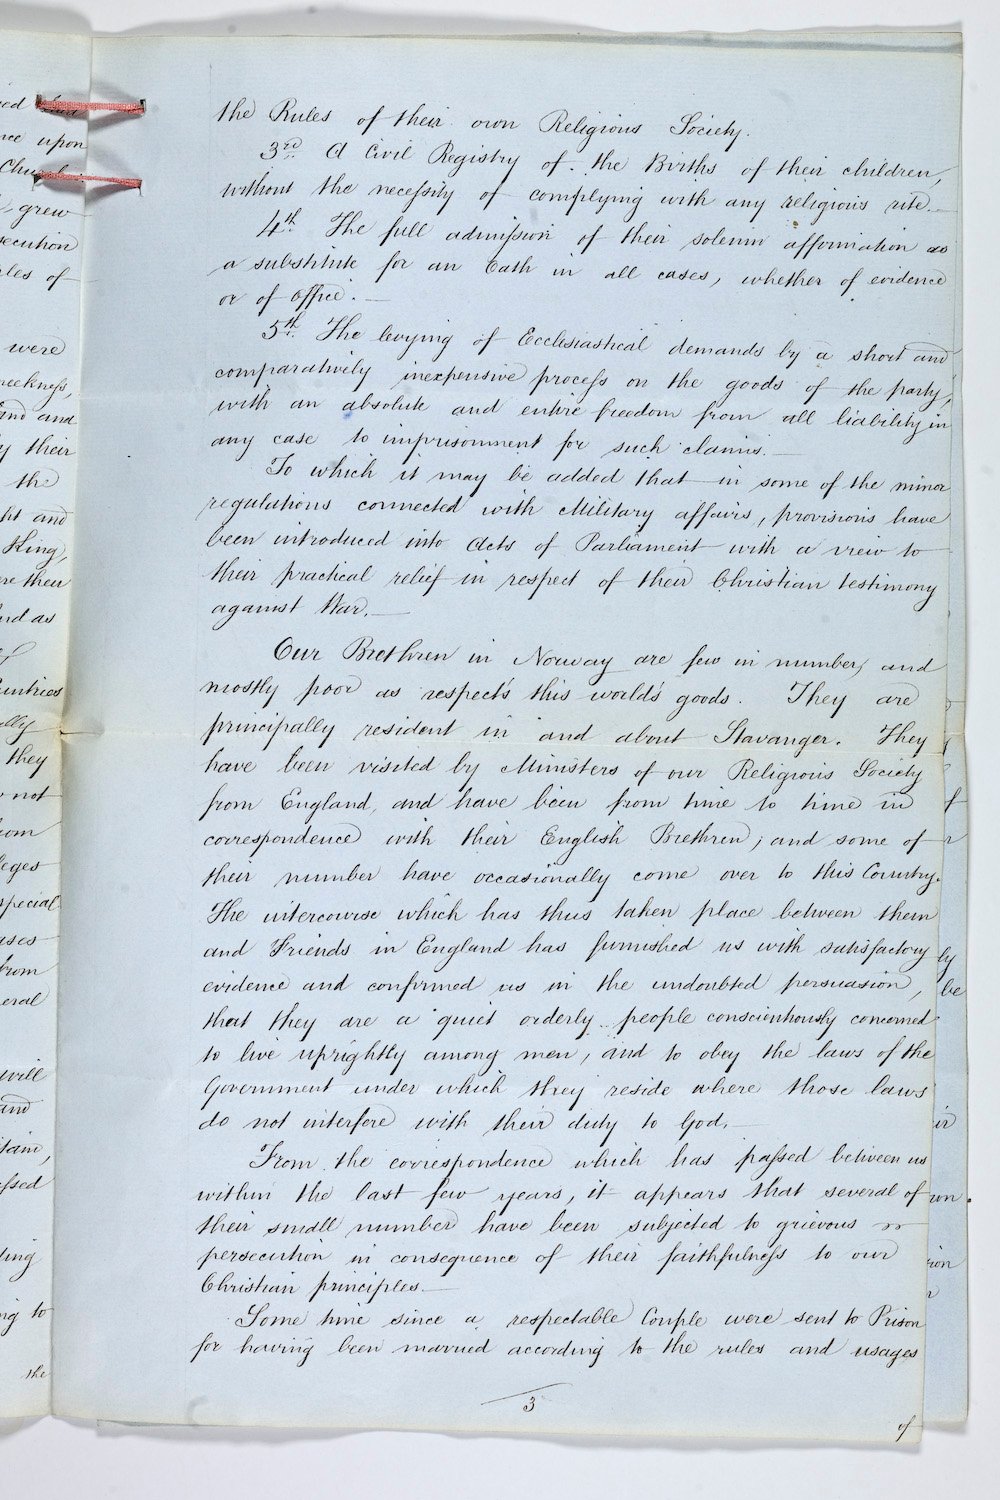 the Rules of their own Religious Society.
3rd. A Civil Registry of the Births of their children,
without the necessity of complying with any religious rite. —
4th. The full admission of their solemn affirmation as
a substitute for an Oath in all cases, whether of evidence
or of Office. —
5th. The levying of Ecclesiastical demands by a short and
comparatively inexpensive process on the goods of the party,
with an absolute and entire freedom from all liability in
any case to imprisonment for such claims. —
To which it may be added that in some of the minor
regulations connected with Military affairs, provisions have
been introduced into Acts of Parliament with a view to
their practical relief in respect of their Christian testimony
against War. —
Our Brethren in Norway are few in number, and
mostly poor as respects this world's goods. They are
principally resident in and about Stavanger. They
have been visited by Ministers of our Religious Society
from England, and have been from time to time in
correspondence with their English Brethren; and some of
their number have occasionally come over to this Country.
The intercourse which has thus taken place between them
and Friends in England has furnished us with satisfactory
evidence and confirmed us in the undoubted persuasion,
that they are a quiet orderly people conscientiously concerned
to live uprightly among men, and to obey the laws of the
Government under which they reside where those laws
do not interfere with their duty to God. —
From the correspondence which has passed between us
within the last few years, it appears that several of
their small number have been subjected to grievous
persecution in consequence of their faithfulness to our
Christian principles. —
Some time since a respectable Couple were sent to Prison
for having been married according to the rules and usages
3
of
upon
grew
were
their
the
and
King,
they
not
special
from
will
and
to
the
be